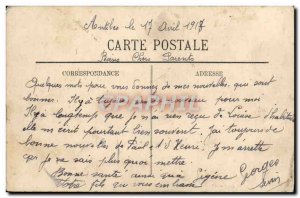 Antibes le 17 Avril 1917
CARTE POSTALE
Biens Chers Parents
CORRESPONDANCE ADRESSE
Quelques mots pour vous donner de mes nouvelles qui sont
bonnes. Il y a pour moi
Il y a longtemps que je n'ai rien reçu de Louise
elle m'écrit pourtant bien souvent. J'ai toujours de
bonne nouvelles de Paul et d'Henri. Je m'arrette
que je ne sais plus quoi mettre.
Bonne santé ainsi que Georges
Votre fils qui vous embrasse